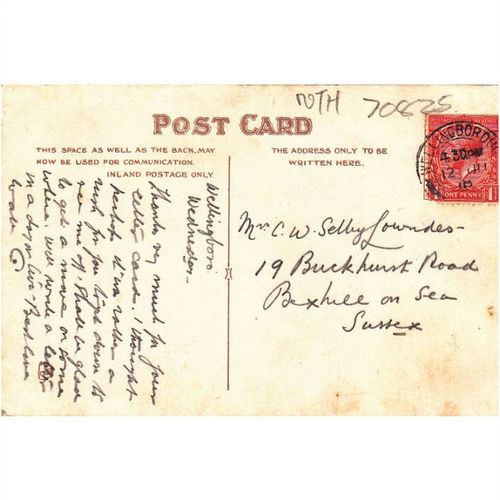 NTH 70825
POST CARD
THIS SPACE AS WELL AS THE BACK, MAY
NOW BE USED FOR COMMUNICATION.
INLAND POSTAGE ONLY.
THE ADDRESS ONLY TO BE
WRITTEN HERE.
WELLINGBORO
4.30PM
12
ONE PENNY
Mrs C. W. Selby Lowndes-
19 Buckhurst Road
Bexhill on Sea
Sussex
Wellingboro.
Wednesday-
Thanks very much for your
letter card. I thought
rather a
rush for you
me off. Shall be glad
to get a move on some
where. Will write a letter
in a day or two- Best love